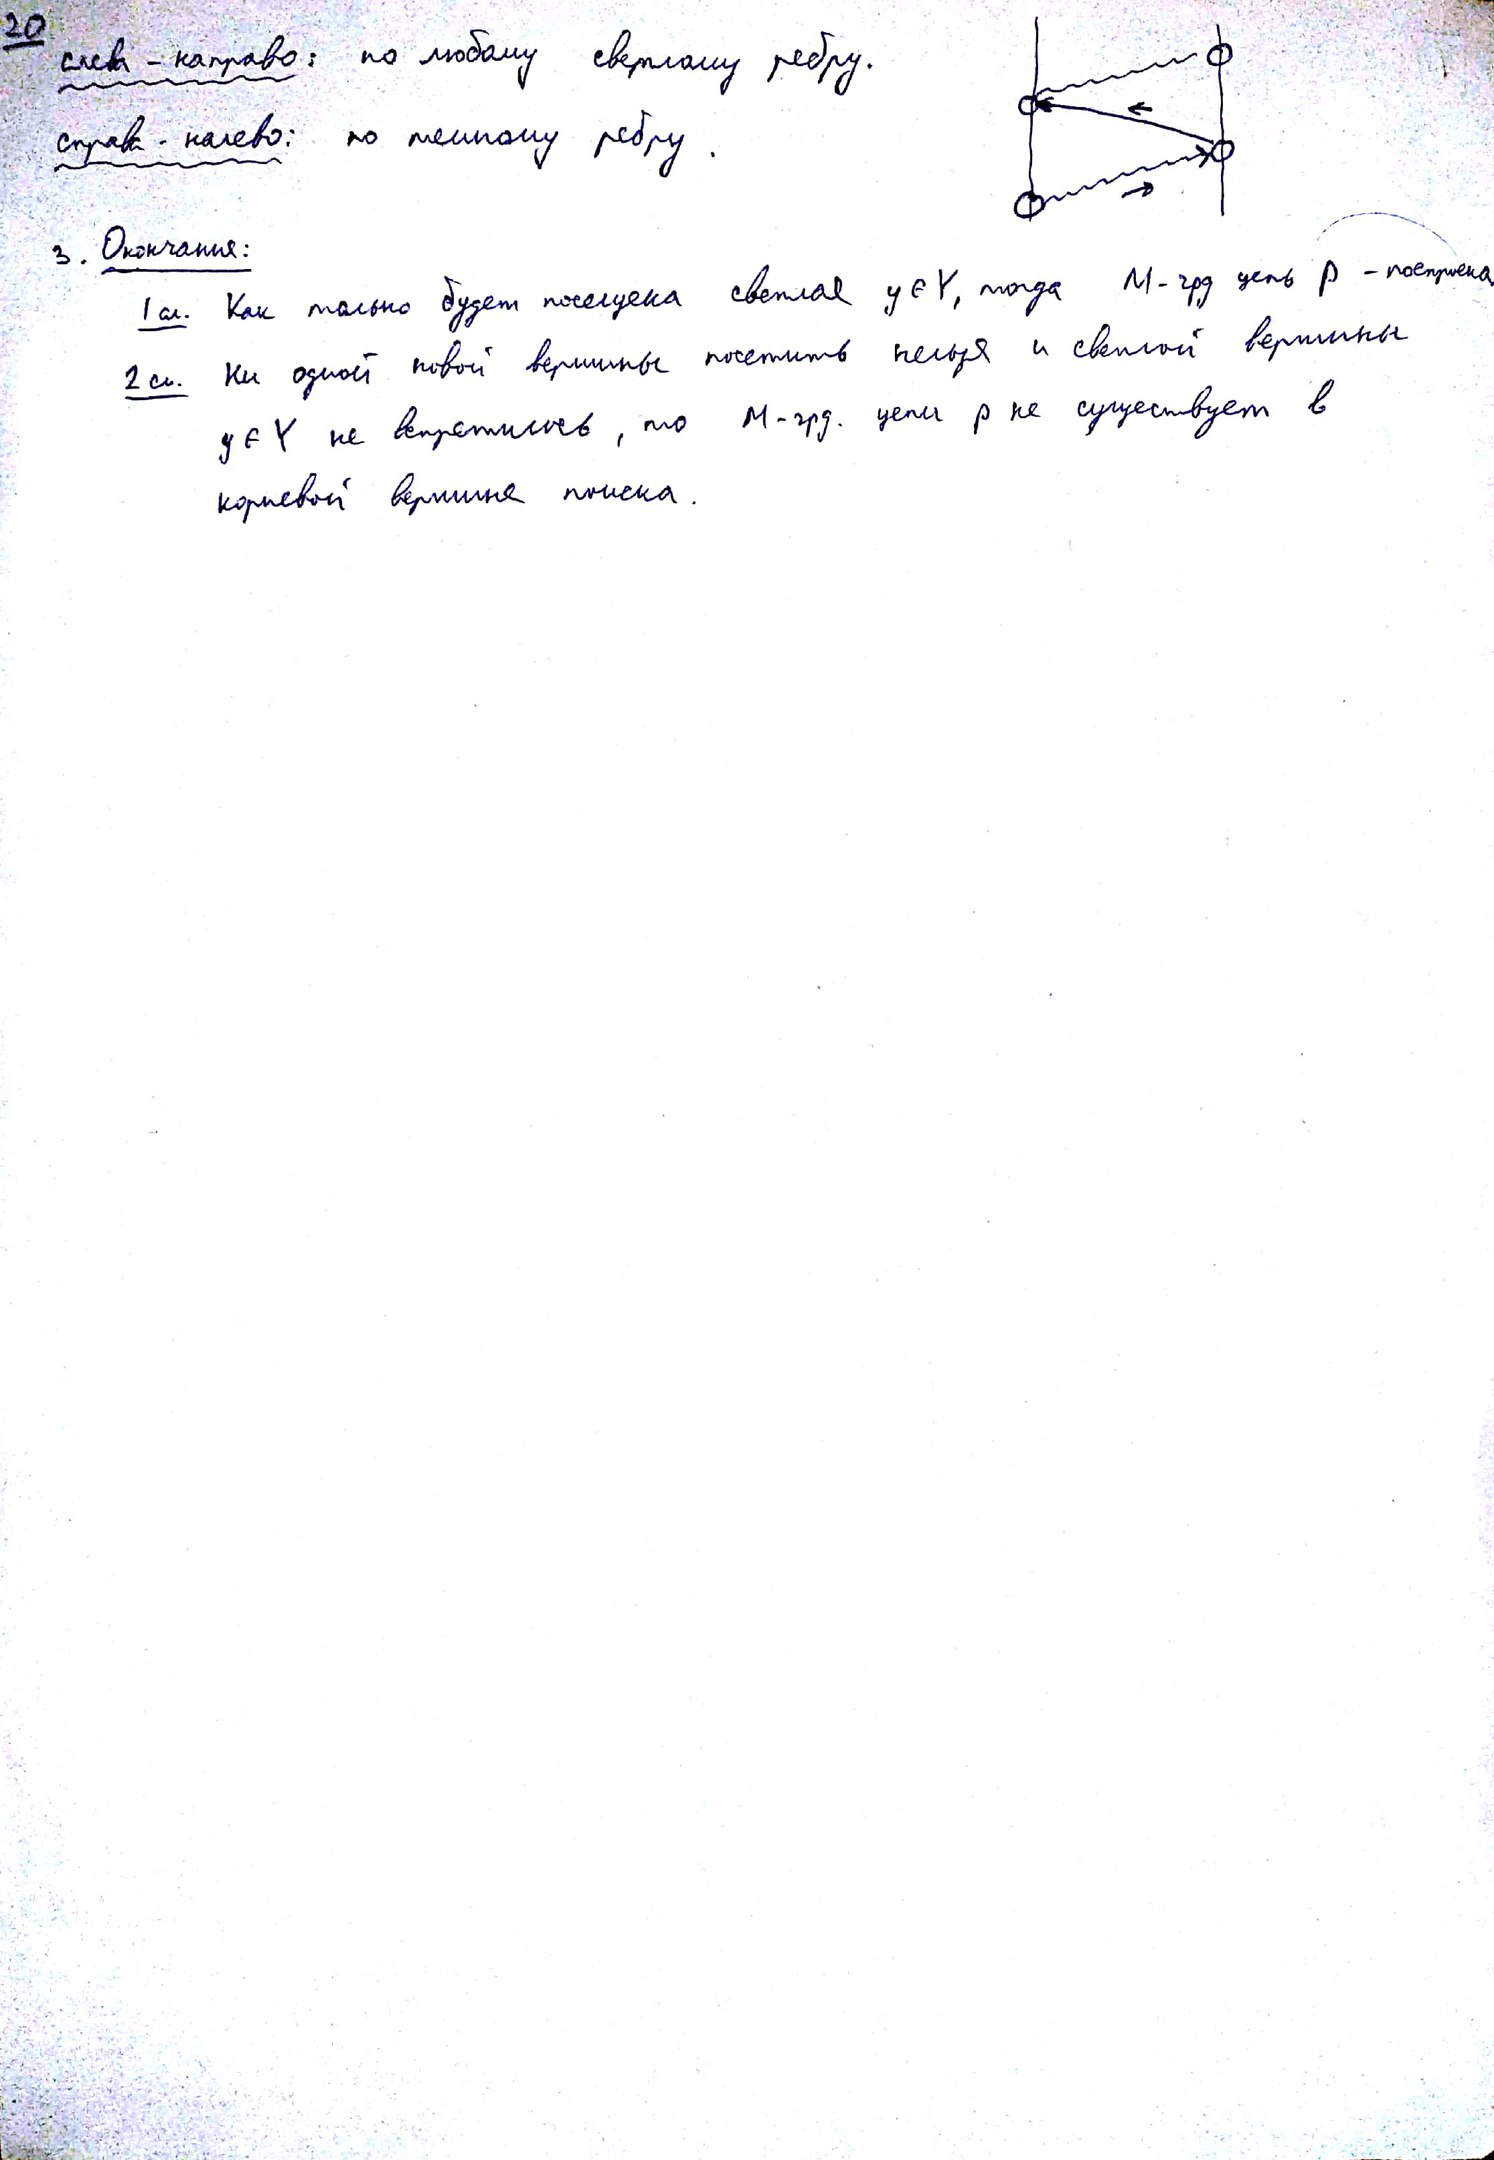 20
слева - направо: по любому светлому ребру.
справа - налево: по темному ребру.
3. Окончание:
1 сл. Как только будет посещена светлая y ∈ Y, тогда M-чрд цепь p - построена
2 сл. Ни одной новой вершины посетить нельзя и светлой вершины
y ∈ Y не встретилось, то M-чрд. цепи p не существует в
корневой вершине поиска.